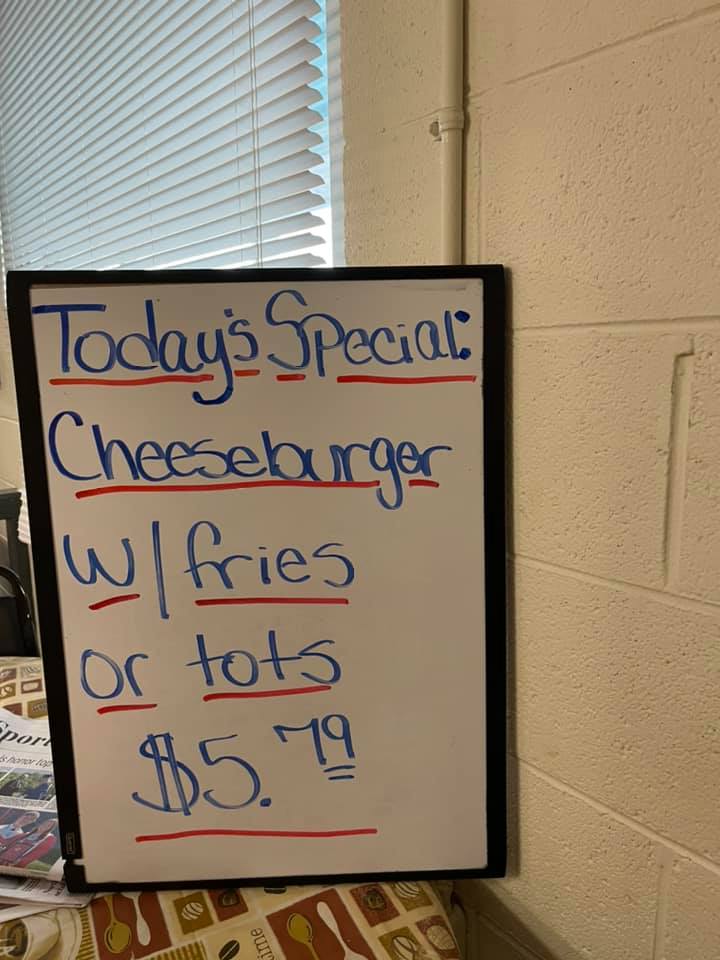 Today's Special:
Cheeseburger
W/ fries
or tots
$5.79
Sport
s honor top
time